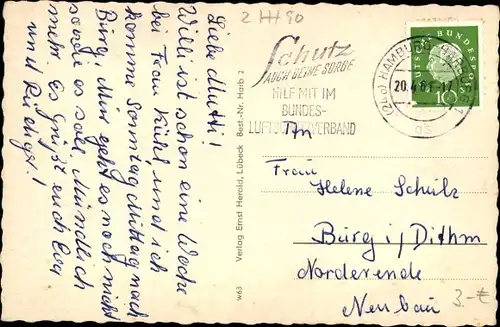 2 HH 90
Liebe Mutti!
Willi ist schon eine Woche
bei Frau Kühl, und ich
komme Sonntagmittag nach
Burg. Mir geht es noch nicht
so wie es soll. Mündlich
mehr. Es grüßt euch Eva
und Rüdiger!
Verlag Ernst Herold, Lübeck Best.-Nr. Harb 2
w63
Schutz
AUCH DEINE SORGE
HILF MIT IM
BUNDES-
LUFTSCHUTZVERBAND
(24a) HAMBURG
20.4.61-17
DEUTSCHE BUNDESPOST
10
An
Frau
Helene Schulz
Burg i/Dithm
Norderende
Neubau
3.-€